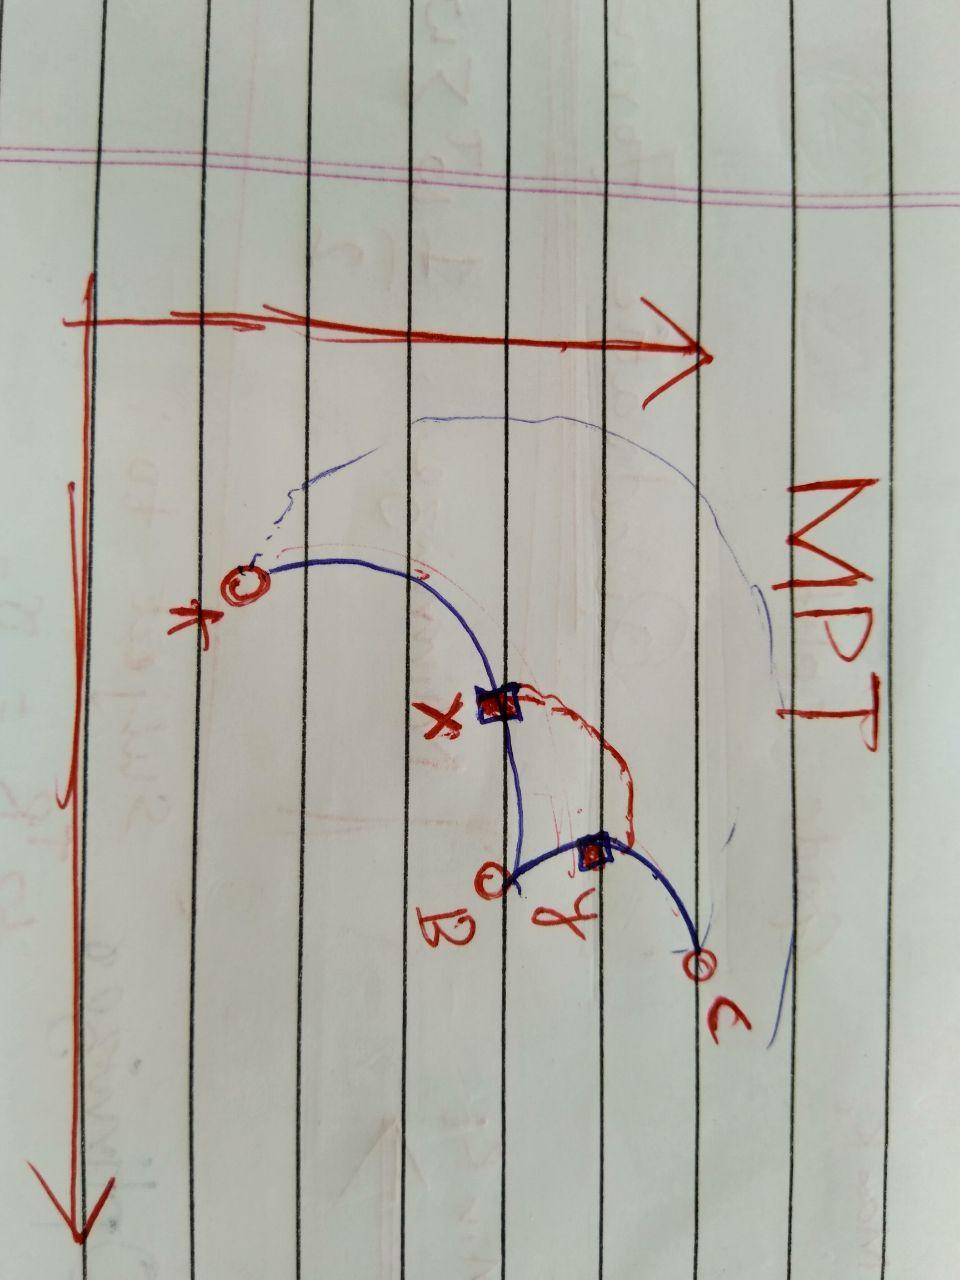 MPT
C
y
X
B
A